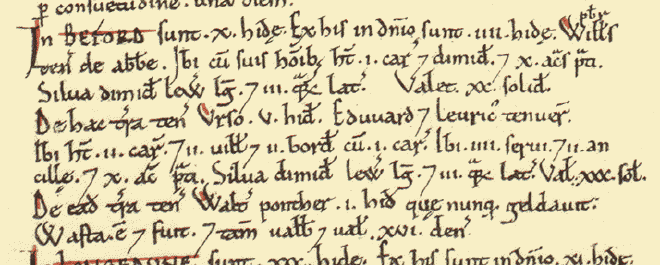 p consuetudine. unā diem.
In BEFORD sunt .x. hidę. Ex his in dn̄io sunt .iiii. hidę. Wills pbr
ten̄ de abbe. Ibi cū suis hōib; ht̄ .i. car̄ ⁊ dimid̄. ⁊ x. ac̄s p̄ti.
Silua dimid̄ lew̄ lḡ. ⁊ iii. q̄ꝝ lat̄. Valet .xx. solid̄.
De hac tr̄a ten̄ Vrso .v. hid̄. Eduuard ⁊ Leuric᷒ tenuer̄.
Ibi ht̄ .ii. car̄. ⁊ ii. uill̄ ⁊ ii. bord̄ cū .i. car̄. Ibi .iiii. serui. ⁊ ii. an
cillę. ⁊ x. ac̄ p̄ti. Silua dimid̄ lew̄ lḡ. ⁊ iii. q̄ꝝ lat̄. Val̄ .xxx. sol̄.
De ead̄ tr̄a ten̄ Walt̄ poncher .i. hid̄ que nunq̄ geldauit:
Wasta .ē. ⁊ fuit. ⁊ tam̄ ualb̄ ⁊ ual̄ .xvi. den̄.
sunt .xxx. hidę. Ex his sunt in dn̄io .xi. hidę.